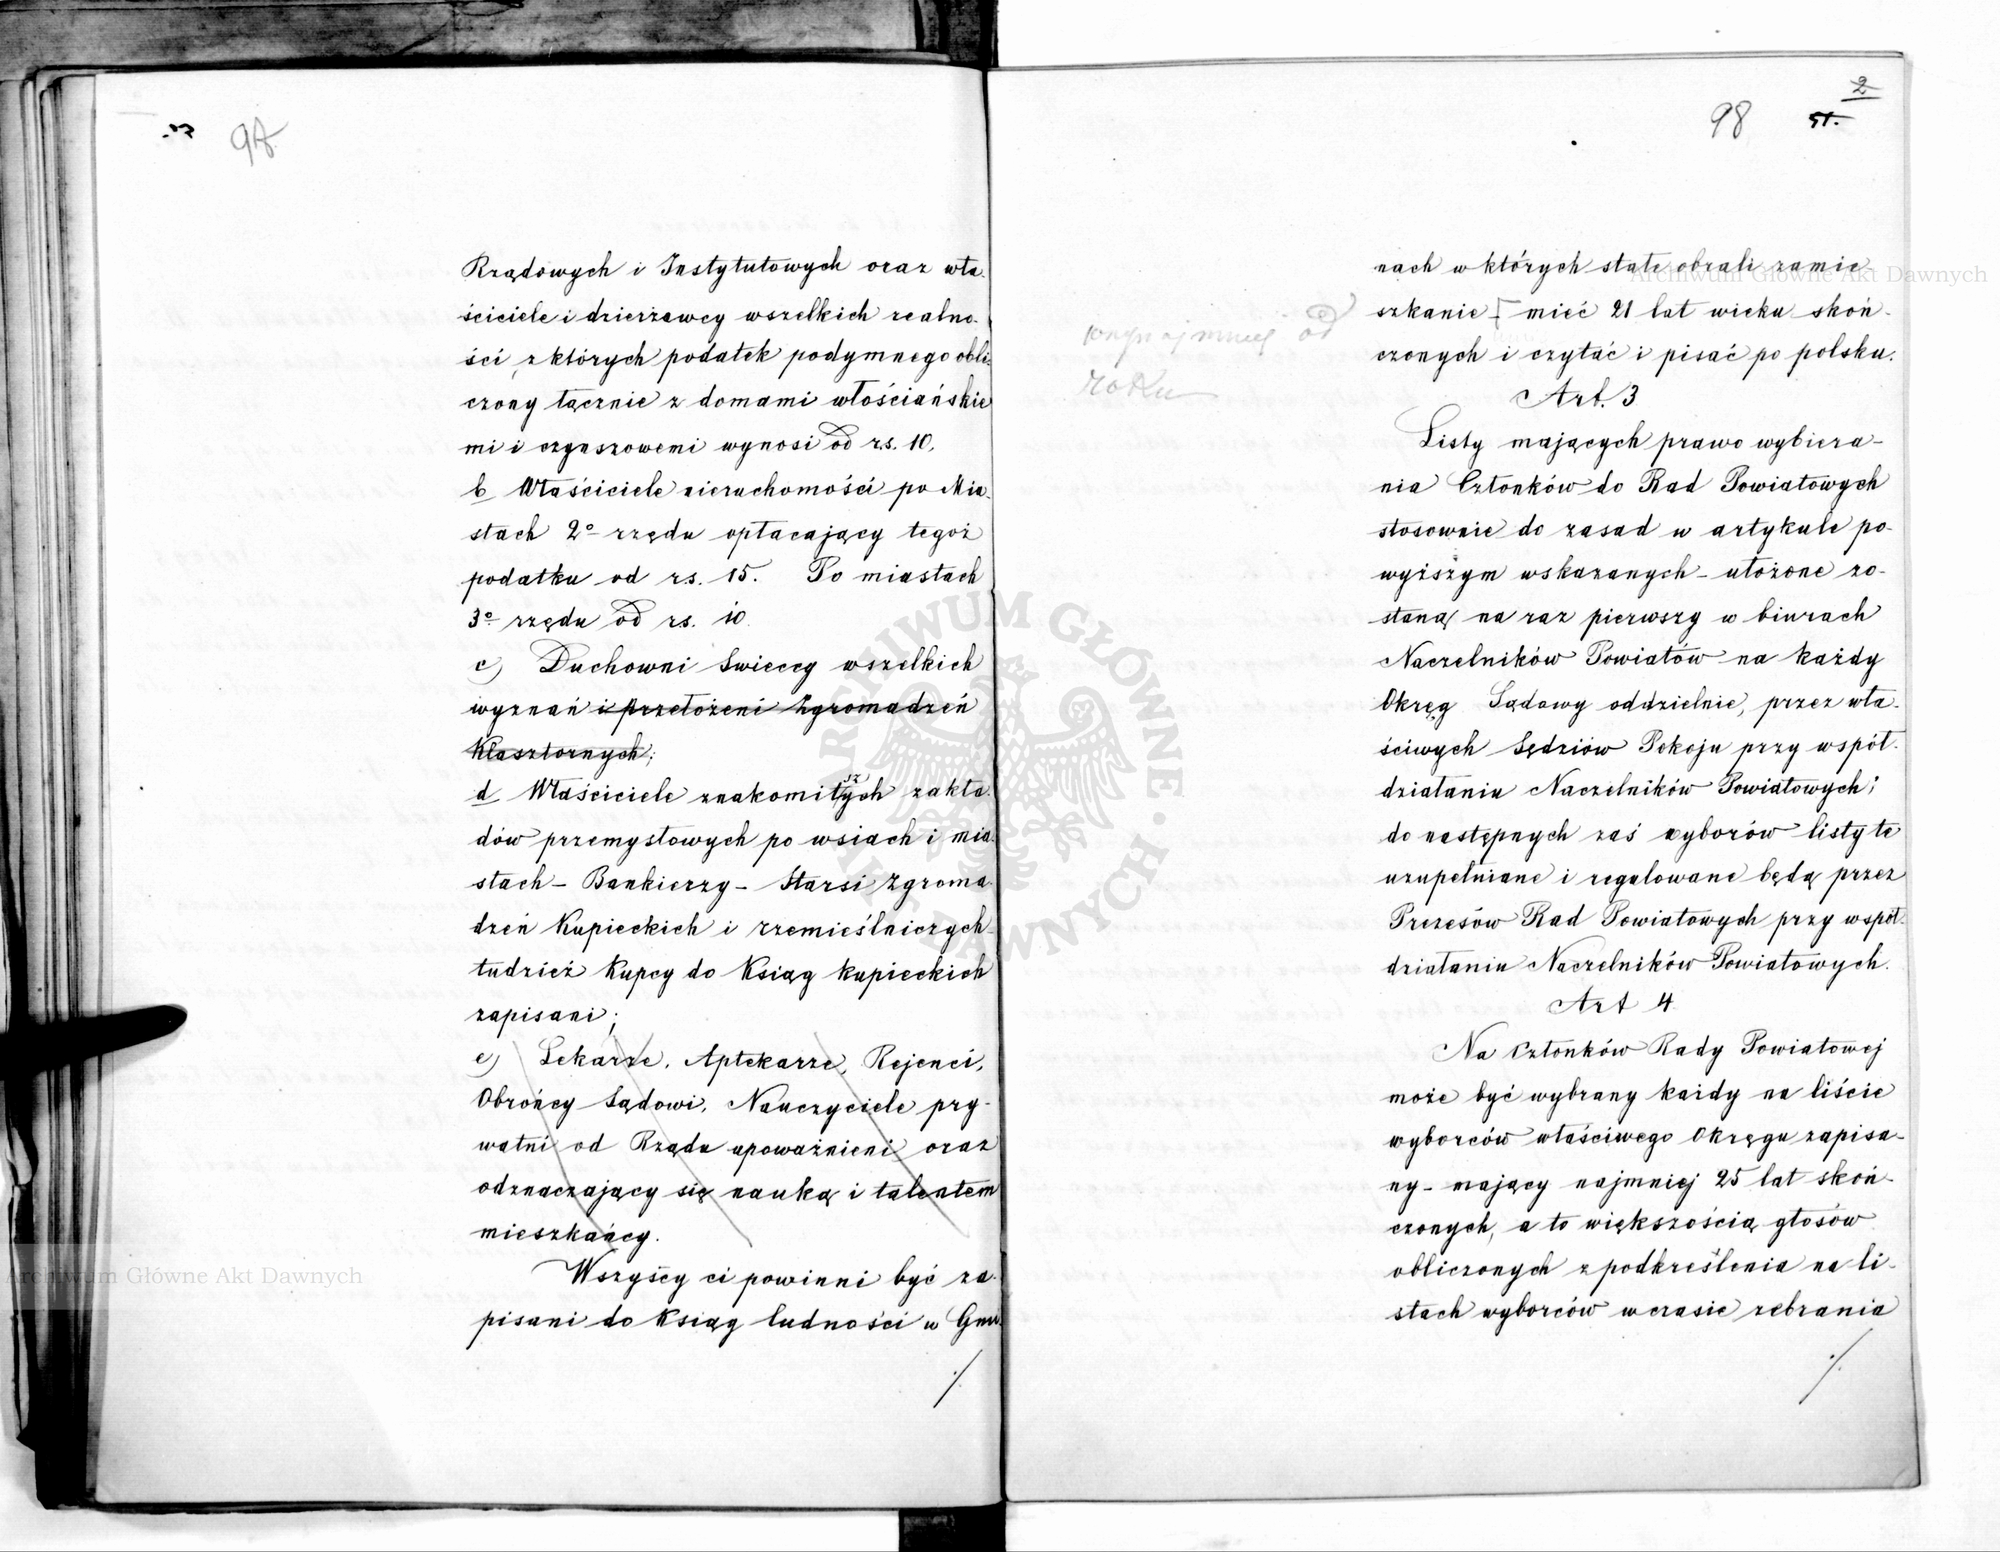 98
Rządowych i Instytutowych oraz wła-
ściciele i dzierżawcy wszelkich realno-
ści, z których podatek podymnego obli-
czony łącznie z domami włościańskie
mi i czynszowemi wynosi od rs. 10.
b Właściciele nieruchomości po Mia-
stach 2º rzędu opłacający tegoż
podatku od rs. 15. Po miastach
3º rzędu od rs. 10.
c) Duchowni Swieccy wszelkich
wyznań i przełożeni Zgromadzeń
Klasztornych;
d Właściciele znakomitszych zakła-
dów przemysłowych po wsiach i mia-
stach – Bankierzy – Starsi Zgroma-
dzeń Kupieckich i rzemieślniczych –
tudzież Kupcy do Ksiąg kupieckich
zapisani;
e) Lekarze, Aptekarze, Rejenci,
Obrońcy Sądowi, Nauczyciele pry-
watni od Rządu upoważnieni, oraz
odznaczający się nauką i talentem
mieszkańcy.
Wszyścy ci powinni być za-
pisani do Ksiąg ludności w Gmi-
./.
2
98 51.
nach w których stale obrali zamie
szkanie [ mieć 21 lat wieku skoń-
czonych i czytać i pisać po polsku.
od
roku
Art. 3
Listy mających prawo wybiera-
nia Członków do Rad Powiatowych
stosownie do zasad w artykule po-
wyższym wskazanych – ułożone zo-
staną na raz pierwszy w biurach
Naczelników Powiatów na każdy
Okręg Sądowy oddzielnie, przez wła-
ściwych Sędziów Pokoju przy współ-
działaniu Naczelników Powiatowych;
do następnych zaś wyborów listy te
uzupełniane i regulowane będą przez
Prezesów Rad Powiatowych przy współ-
działaniu Naczelników Powiatowych.
Art 4
Na Członków Rady Powiatowej
może być wybrany każdy na liście
wyborców właściwego Okręgu zapisa-
ny – mający najmniej 25 lat skoń-
czonych, a to większością głosów
obliczonych z podkreślenia na li-
stach wyborców w czasie zebrania
./.
ARCHIWUM GŁÓWNE AKT DAWNYCH
Archiwum Główne Akt Dawnych
Archiwum Główne Akt Dawnych